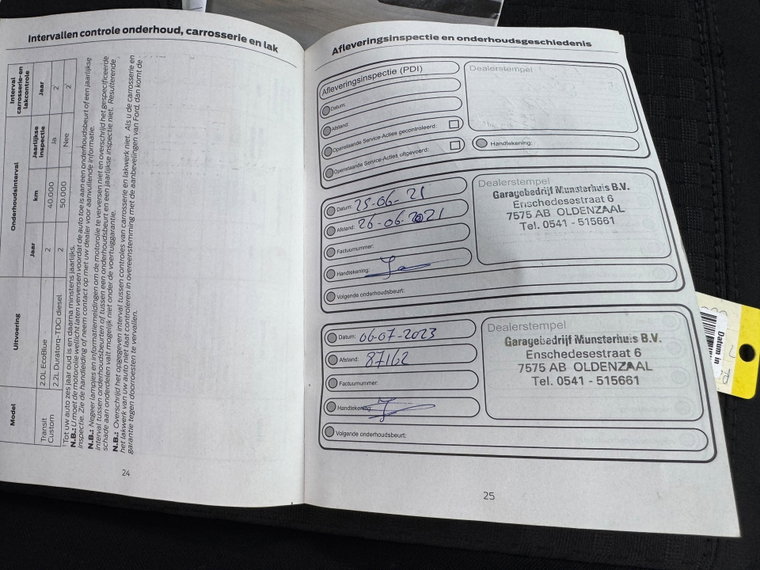 Intervallen controle onderhoud, carrosserie en lak
Model
Uitvoering
Onderhoudsinterval
Interval carrosserie-en lakcontrole
Jaar
km
Jaarlijkse inspectie
Jaar
Transit Custom
2.0L EcoBlue
2
40.000
Ja
2
2.2L Duratorq-TDCi diesel
2
50.000
Nee
2
Tot uw auto zes jaar oud is en daarna minstens jaarlijks.
N.B.: U moet de motorolie wellicht laten verversen voordat de auto toe is aan een onderhoudsbeurt of een jaarlijkse
inspectie. Zie de handleiding of neem contact op met uw dealer voor aanvullende informatie.
N.B.: Negeer lampjes en informatiemeldingen om de motorolie te verversen niet en overschrijd het gespecificeerde
interval tussen onderhoudsbeurten of tussen een onderhoudsbeurt en een jaarlijkse inspectie niet. Resulterende
schade aan onderdelen valt mogelijk niet onder de voertuiggarantie.
N.B.: Overschrijd het opgegeven interval tussen controles van carrosserie en lakwerk niet. Als u de carrosserie en
het lakwerk van uw auto niet laat controleren in overeenstemming met de aanbevelingen van Ford, dan komt de
garantie tegen doorroesten te vervallen.
24
Afleveringsinspectie en onderhoudsgeschiedenis
Afleveringsinspectie (PDI)
Datum:
Afstand:
Openstaande Service-Acties gecontroleerd:
Openstaande Service-Acties uitgevoerd:
Dealerstempel
Handtekening:
Datum: 25-06-21
Afstand: 26-06-2021
Factuurnummer:
Handtekening:
Volgende onderhoudsbeurt:
Dealerstempel
Garagebedrijf Munsterhuis B.V.
Enschedesestraat 6
7575 AB OLDENZAAL
Tel. 0541 - 515661
Datum: 06-07-2023
Afstand: 87162
Factuurnummer:
Handtekening:
Volgende onderhoudsbeurt:
Dealerstempel
Garagebedrijf Munsterhuis B.V.
Enschedesestraat 6
7575 AB OLDENZAAL
Tel. 0541 - 515661
25
Datum in